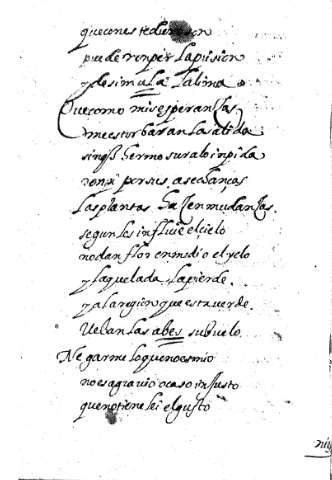 que con este
puede ronper la pusion
y desimula la lima
Que como mis esperansas
me estorbaran la
sin q̃ hermosura lo inpida
ronpi por sus asechansas
las plantas hasen mudansas
segun les influie el cielo
no dan flor en medio el yelo
y la quelada la pierde
y a la region que esta verde
lleban las abes su buelo
Negarme lo que no es mio
no es agravio o caso injusto
que no tiene lei el gusto